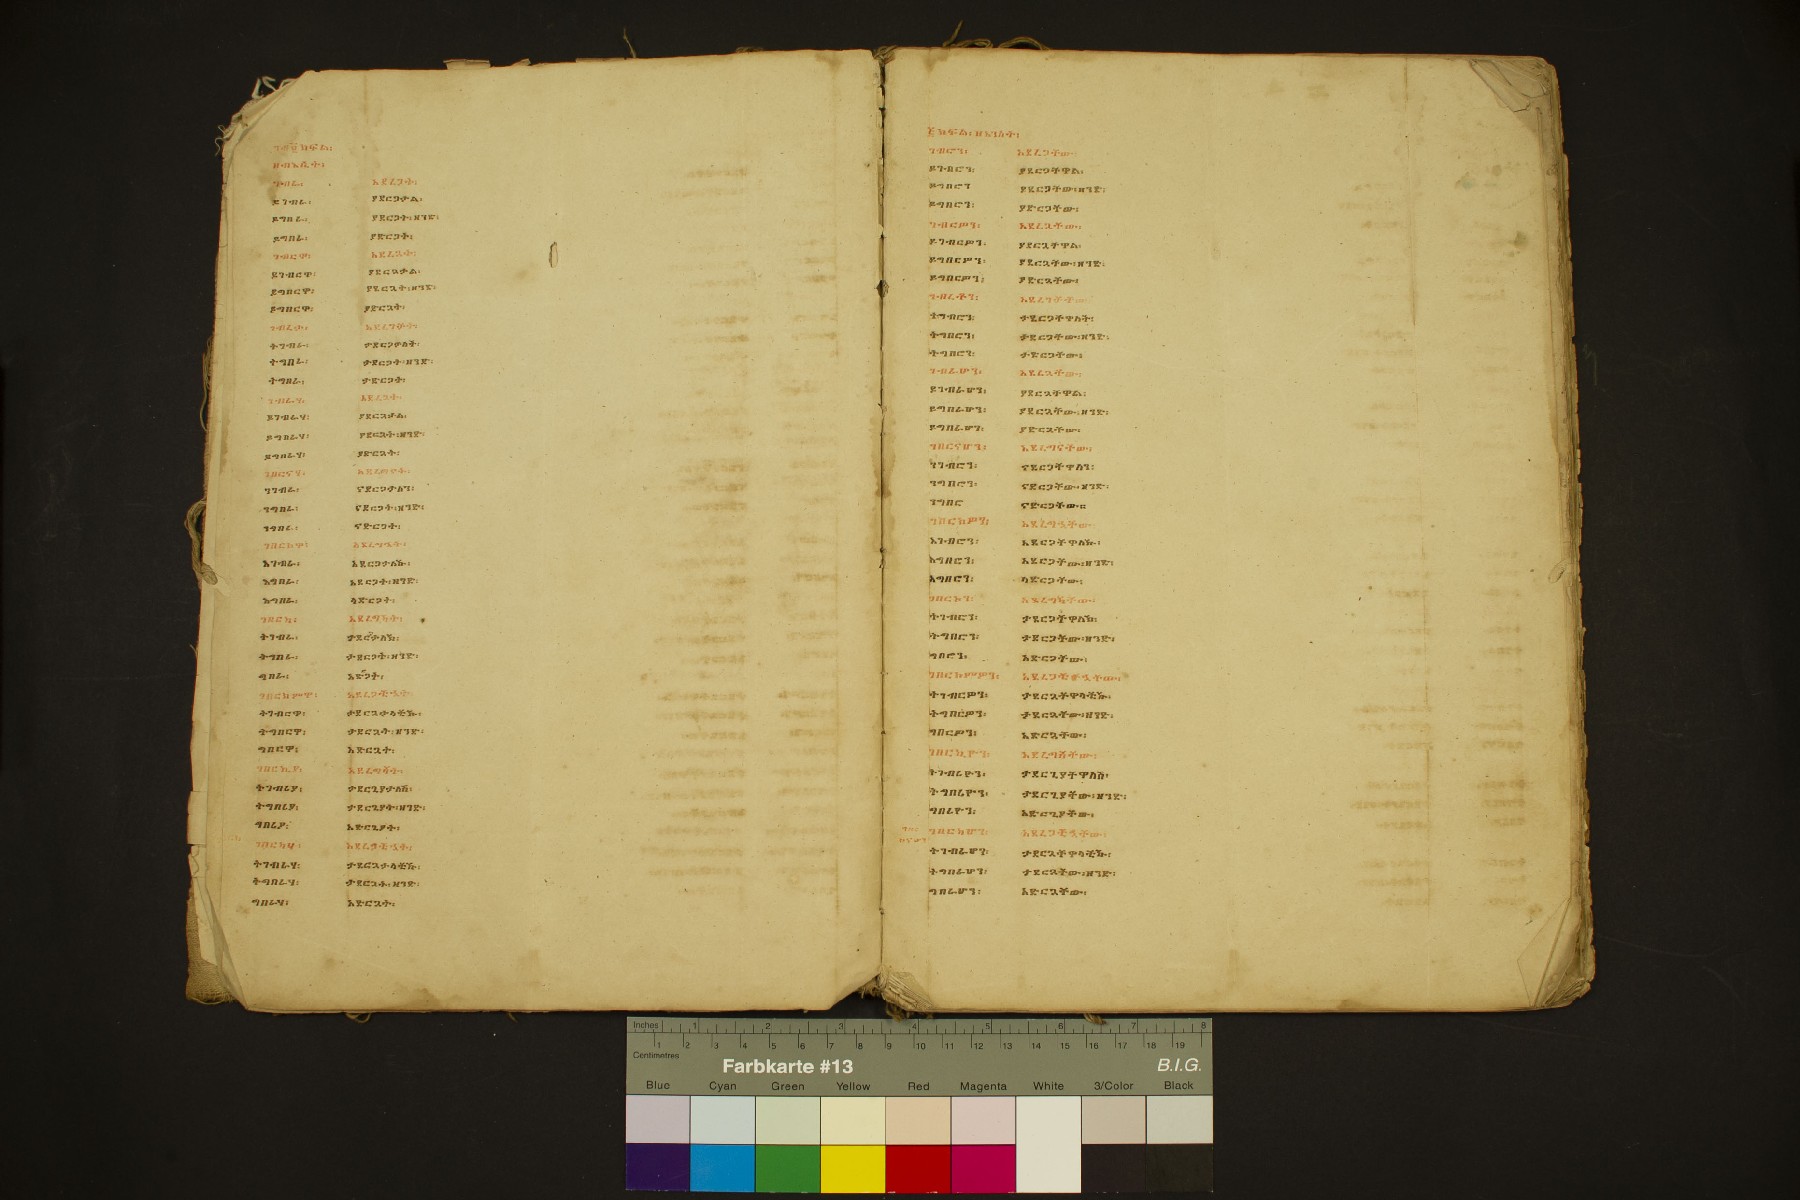 ዘብእሲት፡
ገብራ፡ አደረጋት፡
ይገብራ፡ ያደርጋታል፡
ይግበራ፡ ያደርጋት፡ዘንድ፡
ይግበራ፡ ያድርጋት፡
ገብርዋ፡ አደረጓት፡
ይገብርዋ፡ ያደርጓታል፡
ይግበርዋ፡ ያደርጓት፡ዘንድ፡
ይግበርዋ፡ ያድርጓት፡
ገብረታ፡ አደረገቻት፡
ትገብራ፡ ታደርጋዋለች፡
ትግበራ፡ ታደርጋት፡ዘንድ፡
ትግበራ፡ ታድርጋት፡
ገብራሃ፡ አደረጓት፡
ይገብራሃ፡ ያደርጓታል፡
ይግበራሃ፡ ያደርጓት፡ዘንድ፡
ይግበራሃ፡ ያድርጓት፡
ገበርናሃ፡ አደረግናት፡
ንገብራ፡ ናደርጋታለን፡
ንግበራ፡ ናደርጋት፡ዘንድ፡
ንግበራ፡ ናድርጋት፡
ገበርክዋ፡ አደረግኋት፡
እገብራ፡ አደርጋታለኹ፡
እግበራ፡ አደርጋት፡ዘንድ፡
እግበራ፡ ላድርጋት፡
ገበርካ፡ አደረግኻት፡
ትገብራ፡ ታደርጋታለኽ፡
ትግበራ፡ ታደርጋት፡ዘንድ፡
ግበራ፡ አድርጋት፡
ገበርክምዋ፡ አደረጋቹኋት፡
ትገብርዋ፡ ታደርጓታላቹኹ፡
ትግበርዋ፡ ታደርጓት፡ዘንድ፡
ግበርዋ፡ አድርጓት፡
ገበርኪያ፡ አደረግሻት፡
ትገብሪያ፡ ታደርጊያታለሽ፡
ትግበሪያ፡ ታደርጊያት፡ዘንድ፡
ግበሪያ፡ አድርጊያት፡
ገበርክሃ፡ አደረጋቹኋት፡
ትገብራሃ፡ ታደርጓታላቹኹ፡
ትግበራሃ፡ ታደርጓት፡ዘንድ፡
ግበራሃ፡ አድርጓት፡
ክፍል፡ዘአንስት፡
ገብሮን፡ አደረጋቸው፡
ይገብሮን፡ ያደርጋቸዋል፡
ይግበሮን ያደርጋቸው፡ዘንድ፡
ይግበሮን፡ ያድርጋቸው፡
ገብርዎን፡ አደረጓቸው፡
ይገብርዎን፡ ያደርጓቸዋል፡
ይግበርዎን፡ ያደርጓቸው፡ዘንድ፡
ይግበርዎን፡ ያድርጓቸው፡
ገብረቶን፡ አደረገቻቸው፡
ትገብሮን፡ ታደርጋቸዋለች፡
ትግበሮን፡ ታደርጋቸው፡ዘንድ፡
ትግበሮን፡ ታድርጋቸው፡
ገብራሆን፡ አደረጓቸው፡
ይገብራሆን፡ ያደርጓቸዋል፡
ይግበራሆን፡ ያደርጓቸው፡ዘንድ፡
ይግበራሆን፡ ያድርጓቸው፡
ገበርናሆን፡ አደረግናቸው፡
ንገብሮን፡ ናደርጋቸዋለን፡
ንግበሮን፡ ናደርጋቸው፡ዘንድ፡
ንግበሮ ናድርጋቸው።
ገበርክዎን፡ አደረግኋቸው
እገብሮን፡ አደርጋቸዋለኹ፡
እግበሮን፡ አደርጋቸው፡ዘንድ፡
እግበሮን፡ ላድርጋቸው፡
ገበርኮን፡ አደረግኻቸው፡
ትገብሮን፡ ታደርጋቸዋለኽ፡
ትግበሮን፡ ታደርጋቸው፡ዘንድ፡
ግበሮን፡ አድርጋቸው፡
ገበርክምዎን፡ አደረጋቹኋቸው፡
ትገብርዎን፡ ታደርጓቸዋላቹኹ፡
ትግበርዎን፡ ታደርጓቸው፡ዘንድ፡
ግበርዎን፡ አድርጓቸው፡
ገበርኪዮን፡ አደረግሻቸው፡
ትገብሪዮን፡ ታደርጊያቸዋለሽ፡
ትግበሪዮን፡ ታደርጊያቸው፡ዘንድ፡
ግበሪዮን፡ አድርጊያቸው፡
ገበርክሆን፡ አደረጋቹኋቸው፡
ትገብራሆን፡ ታደርጓቸዋላቹኹ፡
ትግበራሆን፡ ታደርጓቸው፡ዘንድ፡
ግበራሆን፡ አድርጓቸው፡
Inches 1 2 3 4 5 6 7 8
Centimetres 1 2 3 4 5 6 7 8 9 10 11 12 13 14 15 16 17 18 19
Farbkarte #13 B.I.G.
Blue Cyan Green Yellow Red Magenta White 3/Color Black